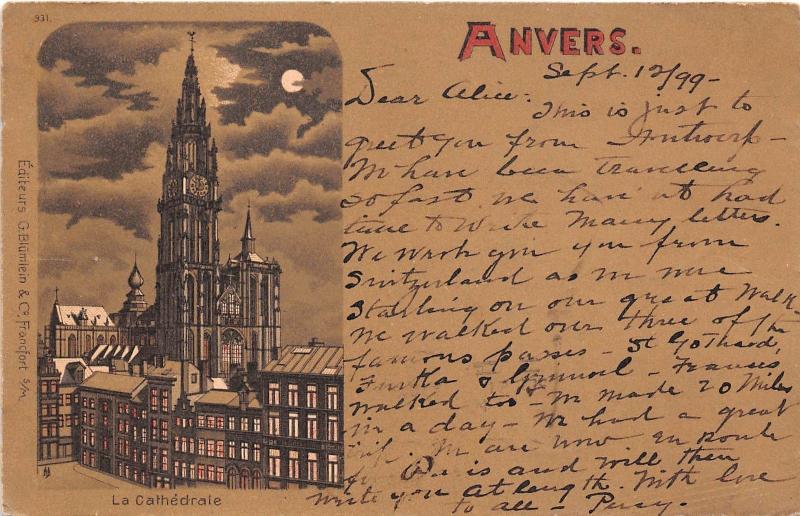 931.
ANVERS.
Sept. 12/99-
Dear Alice:
This is just to
greet you from Antwerp-
We have been travelling
so fast we have not had
time to write many letters.
We wrote you from
Switzerland as we were
starting on our great walk-
We walked over three of the
famous passes - St Gothard,
Furka & Grimsel - Frances
walked too - We made 20 miles
in a day - We had a great
We are now en route
is and will then
write you at length. With love
to all - Percy.
Éditeurs G. Blümlein & Co, Francfort s/M.
La Cathédrale